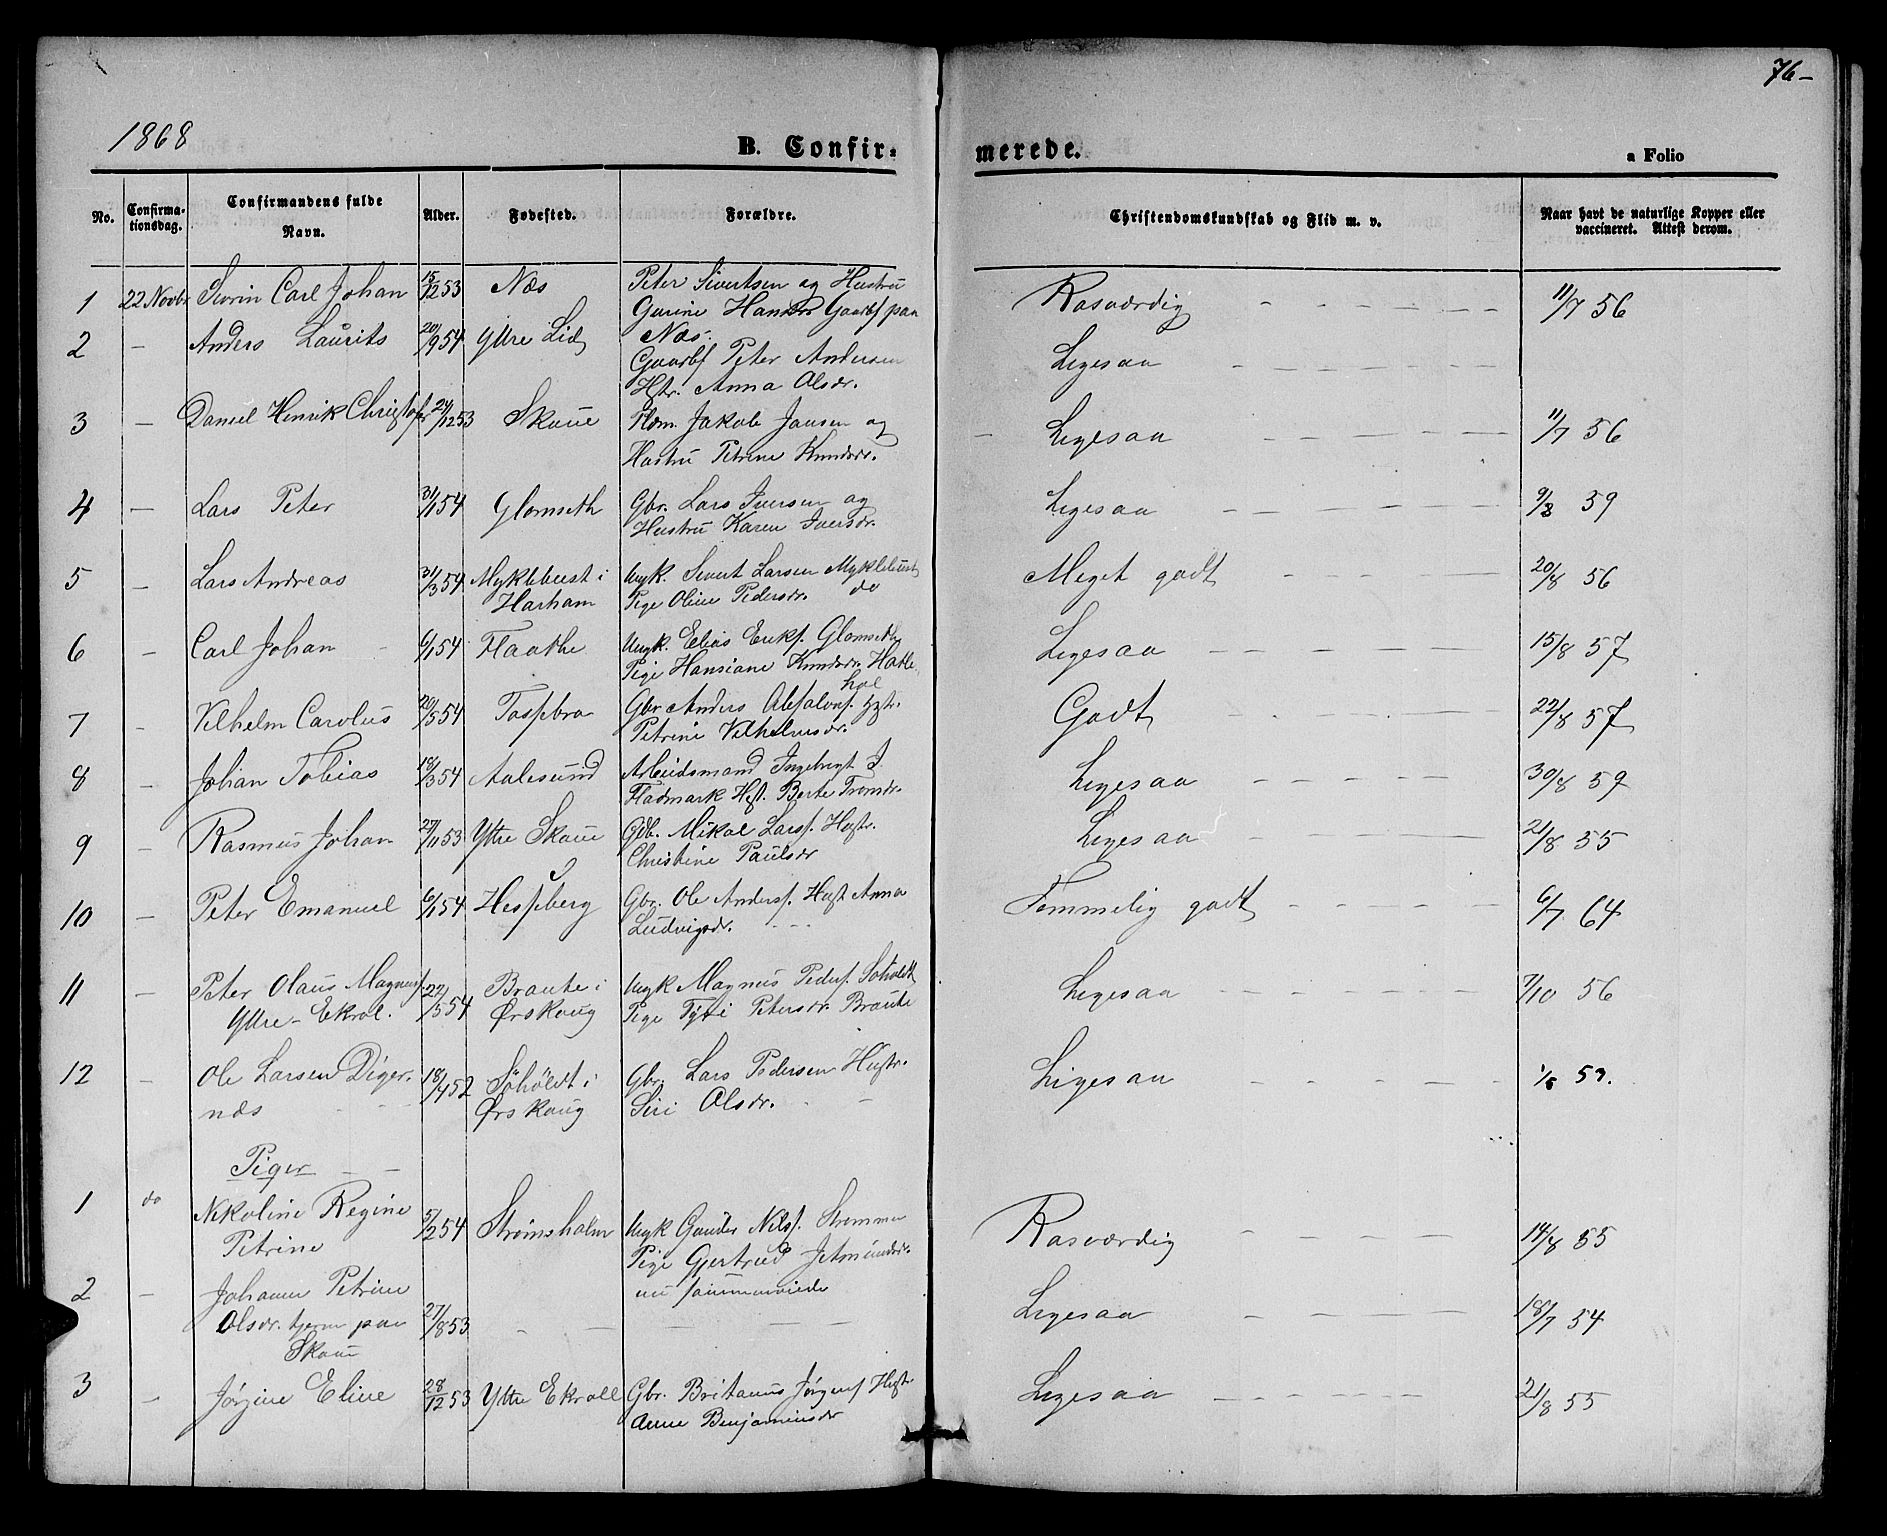 76-
1868
B. Confir-
merede.
a Folio
No.
Confirma-
tionsdag.
Confirmandens fulde
Navn.
Alder.
Fødested.
Forældre.
Christendomskundskab og Flid m. v.
Naar havt de naturlige Kopper eller
vaccineret. Attest derom.
1 22 Novbr Sivrin Carl Johan 15/12 53 Næs Peter Sivertsen og Hustru Rosværdig 11/7 56
Gurine Hansdr Gaardbf paa
2 - Anders Laurits 20/9 54 Yttre Lid Næs.
Gaardbf Peter Andersen Ligesaa
Hstr. Anna Olsdr.
3 - Daniel Henrik Christofer 24/12 53 Skoue Hsm. Jakob Jansen og Ligesaa 11/7 56
Hustru Petrine Knudsdr.
4 - Lars Peter 31/1 54 Glomseth Gbr. Lars Iversen og Ligesaa 9/8 59
Hustru Karen Iversdr.
5 - Lars Andreas 31/3 54 Myklebust i Ungk. Sivert Larsen Myklebust Meget godt 20/8 56
Harham Pige Oline Pedersdr. do
6 - Carl Johan 6/1 54 Flaathe Ungk. Elias Eriks. Glomseth Ligesaa 15/8 57
Pige Hansiane Knudsdr. Hatle-
hol
7 - Vilhelm Carolus 20/5 54 Tospbro Gbr Anders Absalons. Hstr. Godt 22/8 57
Petrine Vilhelmsdr.
8 - Johan Tobias 18/3 54 Aalesund Arbeidsmand Ingebrigt I. Ligesaa 30/8 59
Fladmark Hst. Berte Tromdr.
9 - Rasmus Johan 27/11 53 Yttre Skoue Gdb. Mikal Larss. Hstr. Ligesaa 21/8 55
Christine Paulsdr
10 - Peter Emanuel 6/1 54 Hessberg Gbr. Ole Anders. Hust Anna Temmelig godt 6/7 64
Ludvigsdr.
11 - Peter Olaus Magnus. 22/5 54 Braute i Ungk Magnus Peders. Søholdt Ligesaa 7/10 56
Yttre-Ekrol. Ørskoug Pige Tyri Petersdr. Braute
12 - Ole Larsen Diger- 18/4 52 Søholdt i Gbr. Lars Pedersen Hustr. Ligesaa 1/6 53.
næs Ørskoug Siri Olsdr.
Piger
1 do Nikoline Regine 5/2 54 Strømsholm Ungk Gunder Nils. Strømmen Rosværdig 14/8 55
Petrine Pige Gjertrud Jetmundsdr.
nu sammenviede
2 - Johanne Petrine Ligesaa 18/7 54
Olsdr. tjener paa 27/8 53
Skoue
3 - Jørgine Eline 28/12 53 Yttre Ekroll Gbr. Britanus Jørgens. Hustr Ligesaa 21/8 55
Anne Benjaminsdr